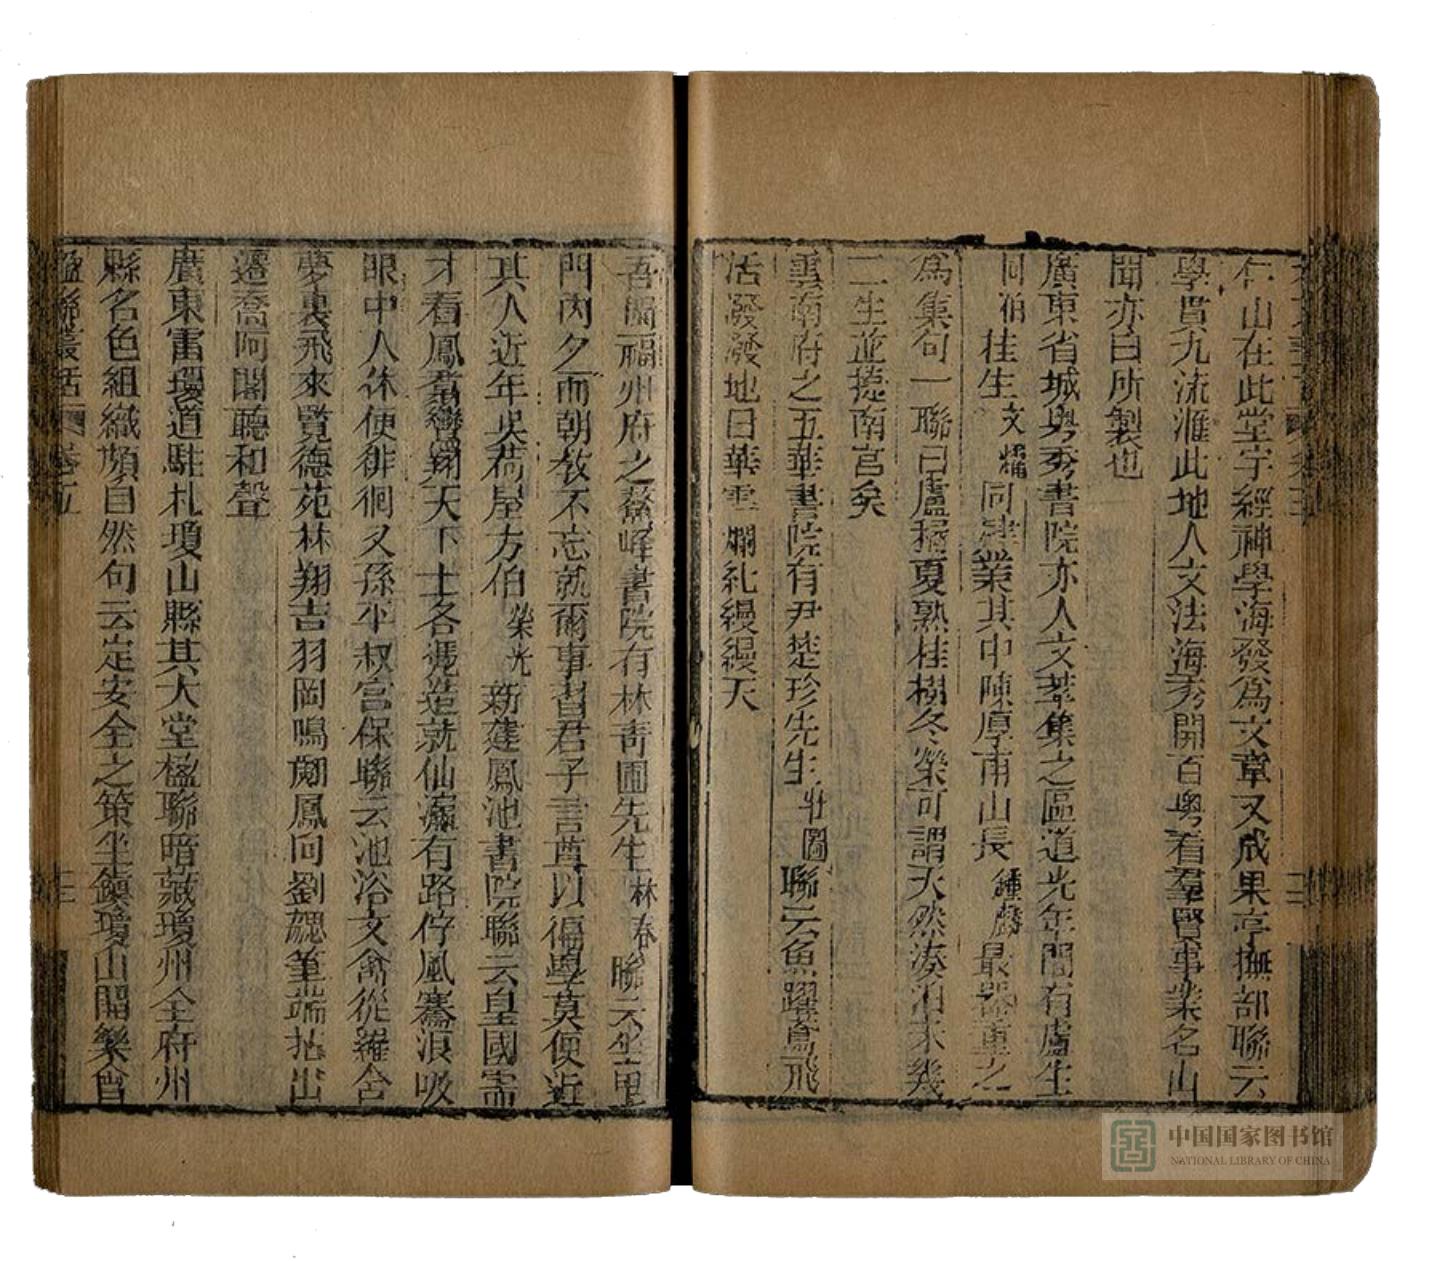 仁山在此堂宇經神學海發爲文章又成果亭撫部聯云
學貫九流滙此地人文法海秀開百粵看羣賢事業名山
聞亦自所製也
廣東省城粵秀書院亦人文萃集之區道光年間有盧生
同伯桂生文燿同肄業其中陳厚甫山長鍾麟最器重之
爲集句一聯曰盧橘夏熟桂樹冬榮可謂天然湊泊未幾
二生並捷南宮矣
雲南府之五華書院有尹楚珍先生壯圖聯云魚躍鳶飛
活潑潑地日華雲爛糺縵縵天
吾閩福州府之鰲峰書院有林靑圃先生林春聯云坐里
門內夕而朝敎不忘就爾事書君子言莫以偶學莫便近
其人近年吳荷屋方伯榮光新建鳳池書院聯云皇國需
才看鳳羣鸞翔天下士各憑造就仙瀛有路停風騫浪吸
眼中人休便徘徊又孫平叔宮保聯云池浴文禽從羅含
夢裏飛來覽德苑林翔吉羽岡鳴鄰鳳向劉勰筆端拈出
遷喬阿閣聽和聲
廣東雷瓊道駐札瓊山縣其大堂楹聯暗藏瓊州全府州
縣名色組織頗自然句云定安全之策坐鎮瓊山開樂會
楹聯叢話 卷五
十二
中国国家图书馆
NATIONAL LIBRARY OF CHINA